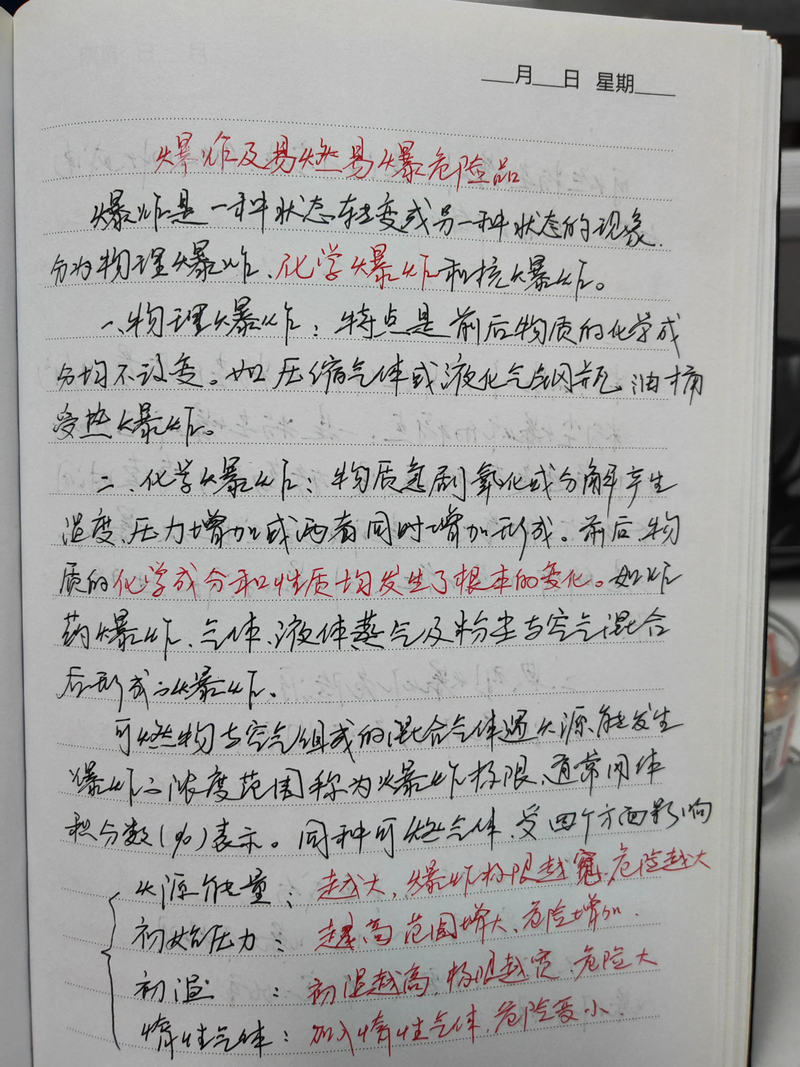 ___月___日 星期____
爆炸及易燃易爆危险品
爆炸是一种状态转变成另一种状态的现象,
分为物理爆炸、化学爆炸和核爆炸。
一、物理爆炸：特点是前后物质的化学成
分均不改变。如压缩气体或液化气钢瓶、油桶
受热爆炸。
二、化学爆炸：物质急剧氧化或分解产生
温度、压力增加或两者同时增加形成。前后物
质的化学成分和性质均发生了根本的变化。如炸
药爆炸、气体、液体蒸气及粉尘与空气混合
后形成之爆炸。
可燃物与空气组成的混合气体遇火源能发生
爆炸之浓度范围称为爆炸极限、通常用体
积分数(%)表示。同种可燃气体，受四个方面影响
火源能量：越大，爆炸极限越宽、危险越大
初始压力：越高范围增大、危险增加.
初温：初温越高、极限越宽、危险大
惰性气体：加入惰性气体、危险变小.